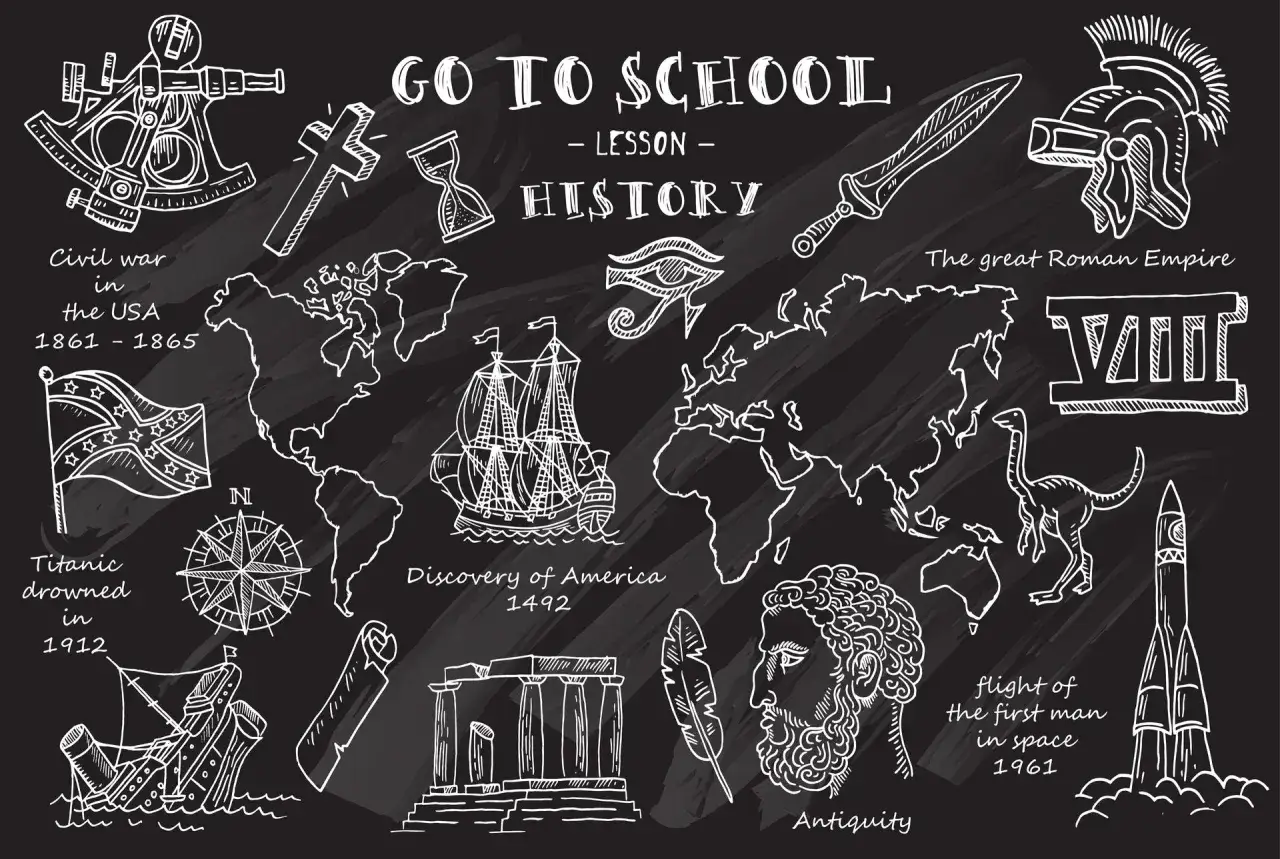 GO TO SCHOOL
- LESSON -
HISTORY
Civil war
in
the USA
1861 - 1865
The great Roman Empire
VIII
N
Discovery of America
1492
Titanic
drowned
in
1912
flight of
the first man
in space
1961
Antiquity